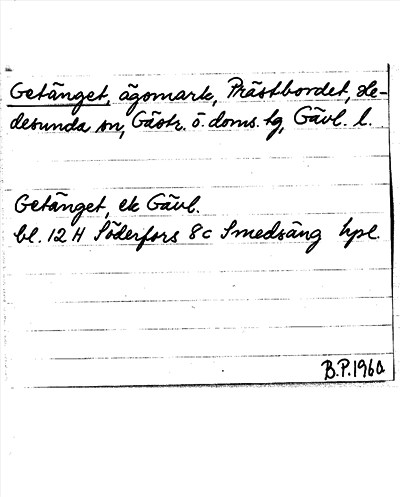 Getänget, ägomark, Prästbordet, He-
desunda sn, Gästr. ö. doms. tg, Gävl. l.
Getänget, ek Gävl.
bl. 12 H Söderfors 8c Smedsäng hpl.
B.P. 1960